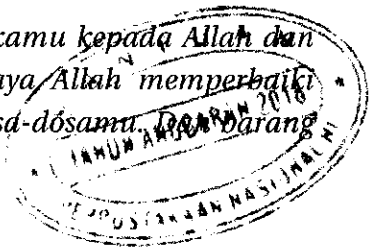 kamu kepada Allah dan
aya Allah memperbaiki
sa-dosamu. Dan barang
TAHUN ANGGARAN 2016
PERPUSTAKAAN NASIONAL RI